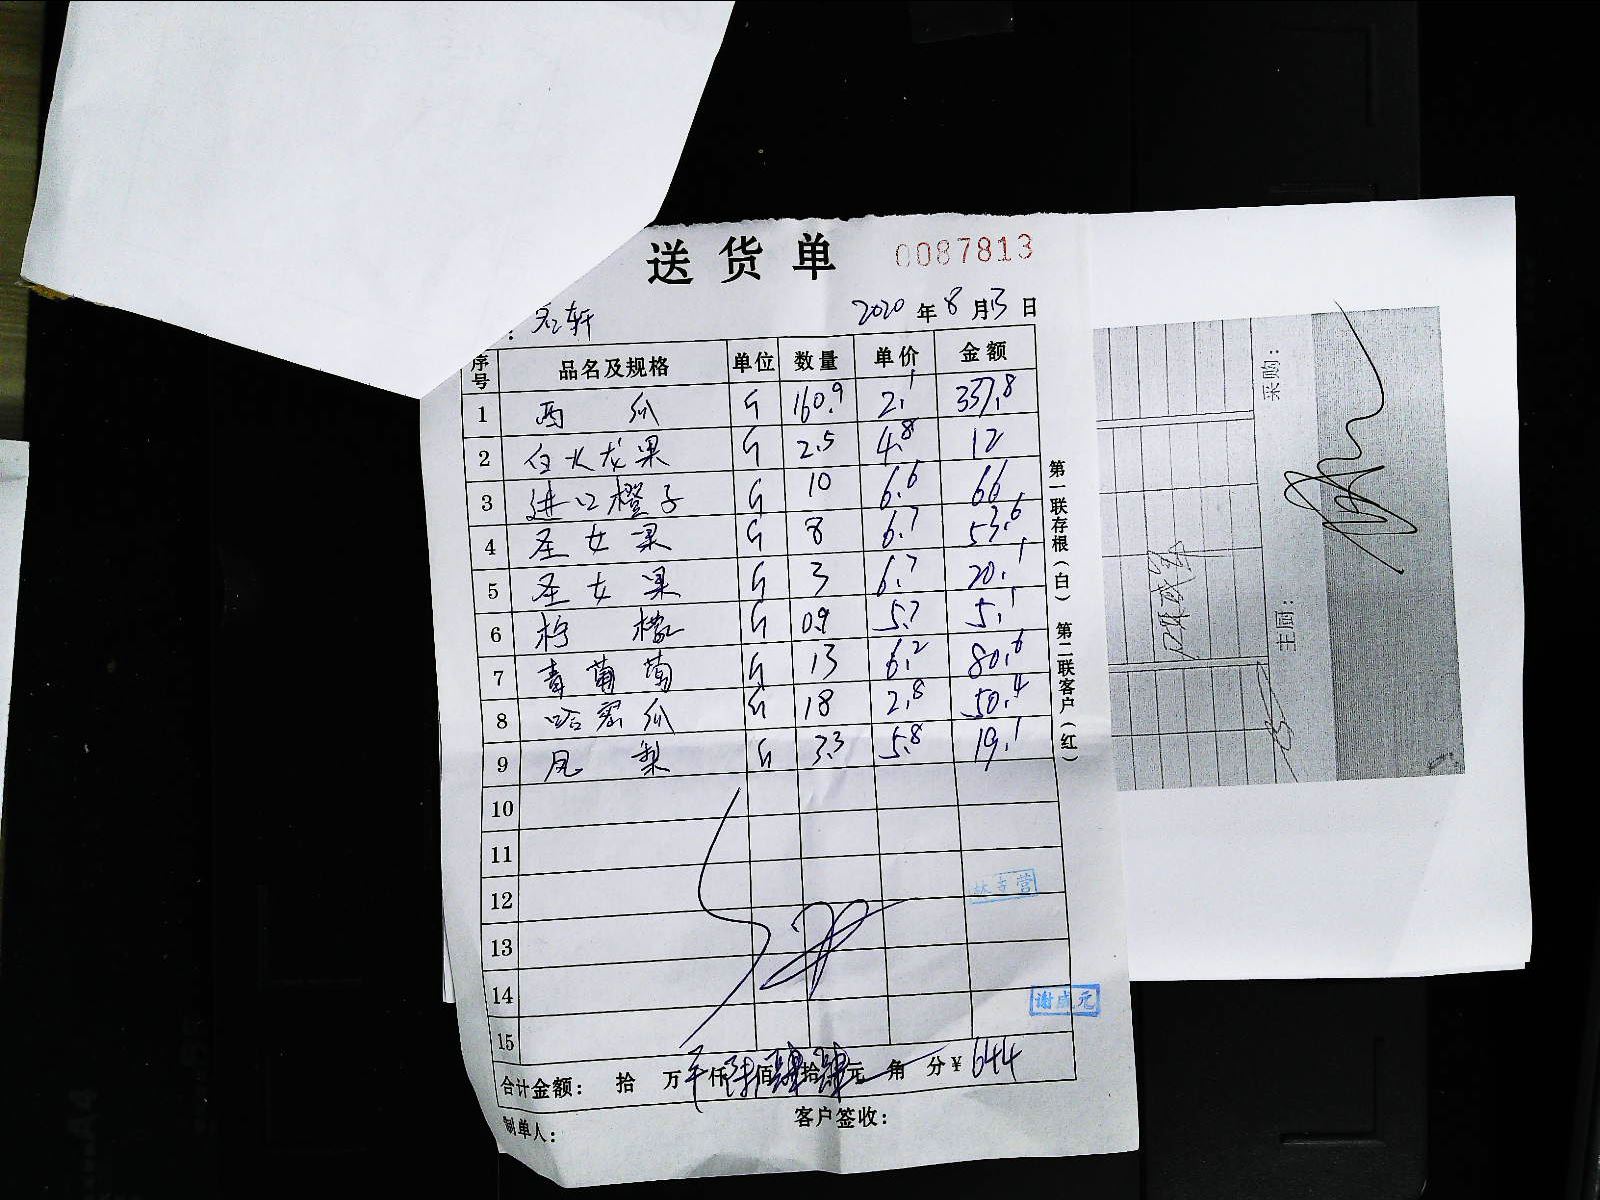 送货单 0087813
轩 2020年8月13日
序号 品名及规格 单位 数量 单价 金额
1 西瓜 斤 160.9 2.1 337.8
2 白火龙果 斤 2.5 4.8 12
3 进口橙子 斤 10 6.6 66
4 圣女果 斤 8 6.7 53.6
5 圣女果 斤 3 6.7 20.1
6 柠檬 斤 0.9 5.7 5.1
7 青葡萄 斤 13 6.2 80.6
8 哈密瓜 斤 18 2.8 50.4
9 凤梨 斤 3.3 5.8 19.1
10
11
12
13
14
15
合计金额: 拾 万 仟陆佰肆拾肆元 角 分¥644
制单人: 客户签收:
第一联存根(白) 第二联客户(红)
谢成元
采购:
主厨: